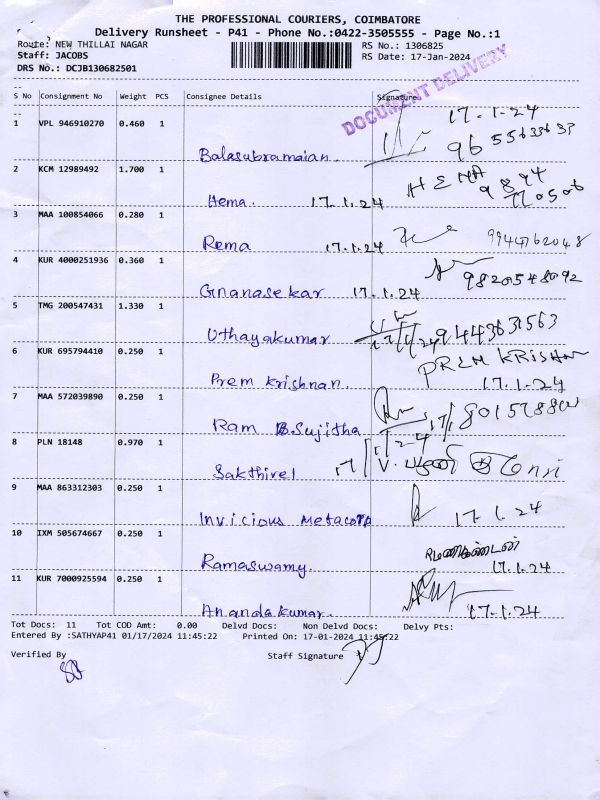 THE PROFESSIONAL COURIERS, COIMBATORE
Delivery Runsheet - P41 - Phone No.:0422-3505555 - Page No.:1
Route: NEW THILLAI NAGAR RS No.: 1306825
Staff: JACOBS RS Date: 17-Jan-2024
DRS No.: DCJB130682501
DOCUMENT DELIVERY
S No Consignment No Weight PCS Consignee Details Signature
1 VPL 946910270 0.460 1 17.1.24
Balasubramaian.
2 KCM 12989492 1.700 1 HEMA 9894
Hema. 17.1.24 770506
3 MAA 100854066 0.280 1
Rema 17.1.24 9944762048
4 KUR 4000251936 0.360 1
Gnanasekar 17.1.24 9820548092
5 TMG 200547431 1.330 1
Uthayakumar 9444363563
6 KUR 695794410 0.250 1 PREM KRISHNAN
Prem krishnan. 17.1.24
7 MAA 572039890 0.250 1
Ram B.Sujitha
8 PLN 18148 0.970 1
Sakthivel
9 MAA 863312303 0.250 1
Invicious metacorp 17.1.24
10 IXM 505674667 0.250 1
Ramaswamy. 17.1.24
11 KUR 7000925594 0.250 1
Anandakumar. 17.1.24
Tot Docs: 11 Tot COD Amt: 0.00 Delvd Docs: Non Delvd Docs: Delvy Pts:
Entered By :SATHYAP41 01/17/2024 11:45:22 Printed On: 17-01-2024 11:45:22
Verified By Staff Signature